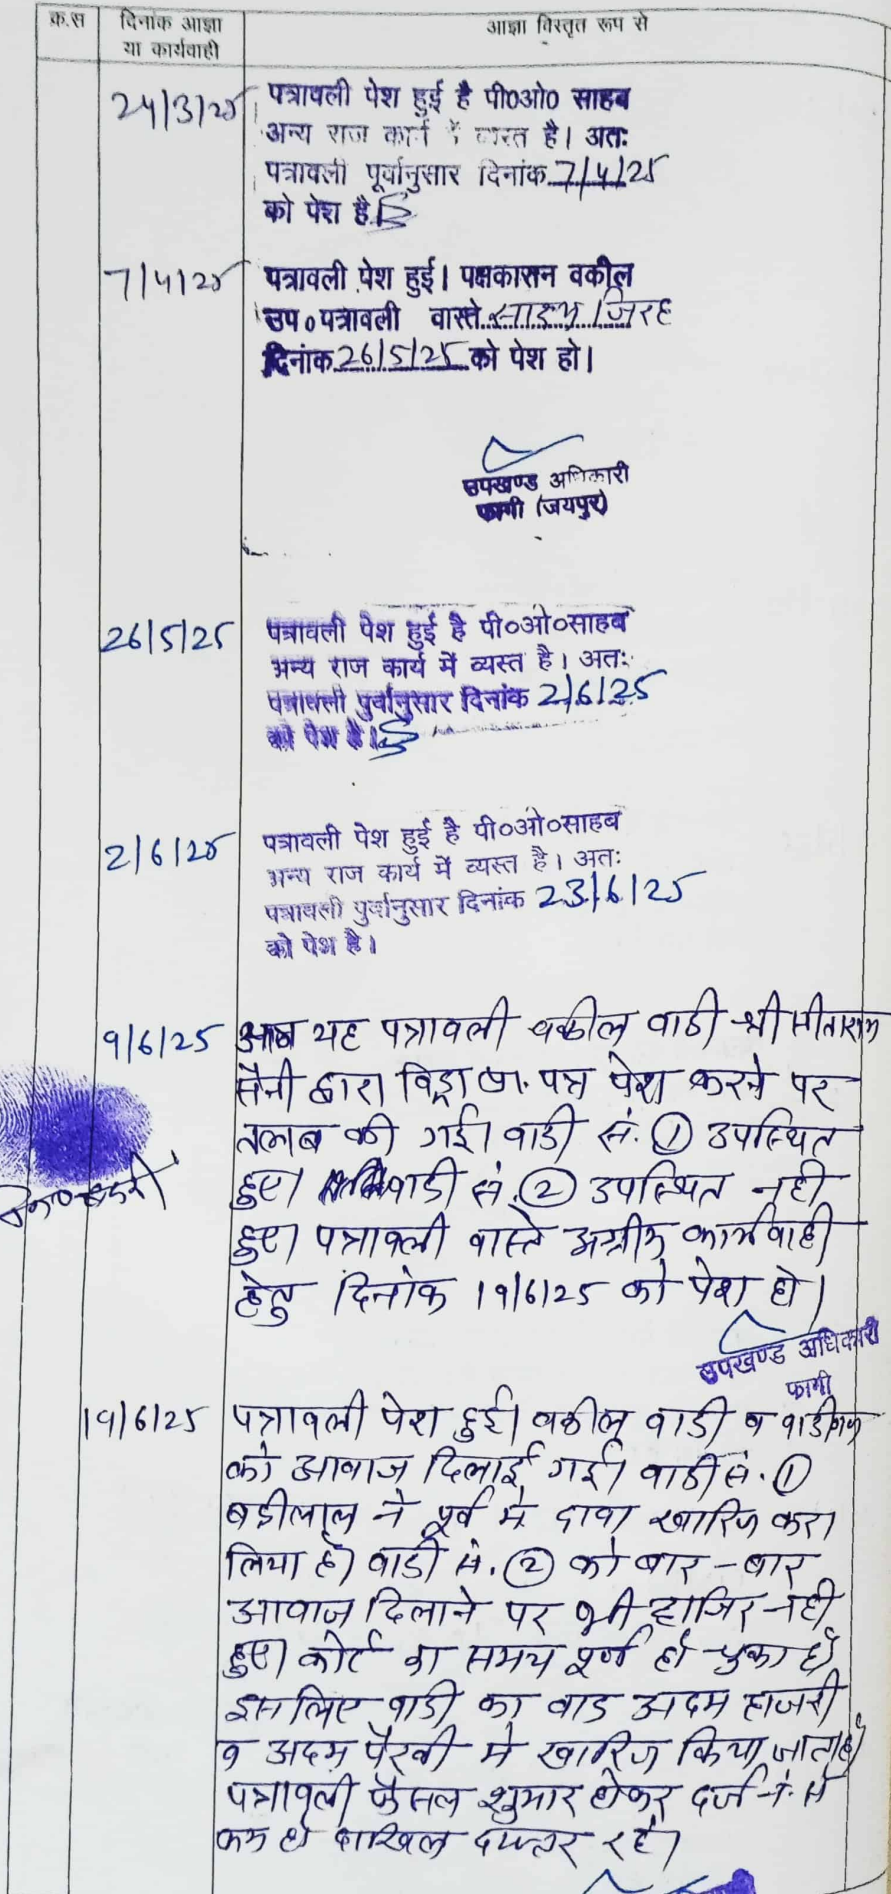 क्र.स दिनांक आज्ञा आज्ञा विस्तृत रूप से
या कार्यवाही
24/3/25 पत्रावली पेश हुई है पी०ओ० साहब
अन्य राज कार्य में व्यस्त है। अतः
पत्रावली पूर्वानुसार दिनांक 7/4/25
को पेश है।
7/4/25 पत्रावली पेश हुई। पक्षकारान वकील
उप० पत्रावली वास्ते साक्ष्य जिरह
दिनांक 26/5/25 को पेश हो।
उपखण्ड अधिकारी
फागी (जयपुर)
26/5/25 पत्रावली पेश हुई है पी०ओ०साहब
अन्य राज कार्य में व्यस्त है। अतः
पत्रावली पुर्वानुसार दिनांक 2/6/25
को पेश है।
2/6/25 पत्रावली पेश हुई है पी०ओ०साहब
अन्य राज कार्य में व्यस्त है। अतः
पत्रावली पुर्वानुसार दिनांक 23/6/25
को पेश है।
9/6/25 आज यह पत्रावली वकील वादी श्री सीताराम
सैनी द्वारा विड्रा प्रा. पत्र पेश करने पर
तलब की गई। वादी सं. ① उपस्थित
हुए। वादी सं. ② उपस्थित नही
हुए। पत्रावली वास्ते अग्रीम कार्यवाही
हेतु दिनांक 19/6/25 को पेश हो।
उपखण्ड अधिकारी
फागी
19/6/25 पत्रावली पेश हुई। वकील वादी व वादीगण
को आवाज दिलाई गई। वादी सं. ①
बद्रीलाल ने पूर्व मे दावा खारिज करा
लिया है। वादी सं. ② को बार-बार
आवाज दिलाने पर भी हाजिर नही
हुए। कोर्ट का समय पूर्ण हो चुका है
इसलिए वादी का वाद अदम हाजरी
व अदम पैरवी मे खारिज किया जाता है।
पत्रावली फैसल शुमार होकर दर्ज नं. से
कम हो दाखिल दफ्तर रहे।